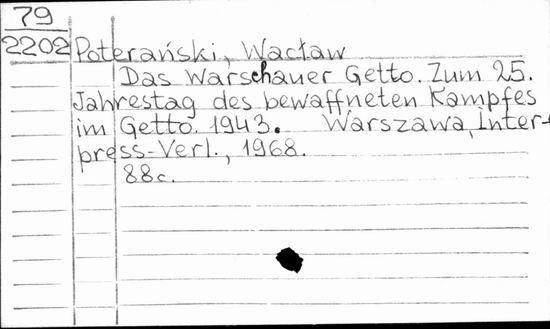 79
2202 Poterański, Wacław
Das Warschauer Getto. Zum 25.
Jahrestag des bewaffneten Kampfes
im Getto. 1943. Warszawa, Inter-
press-Verl., 1968.
88c.